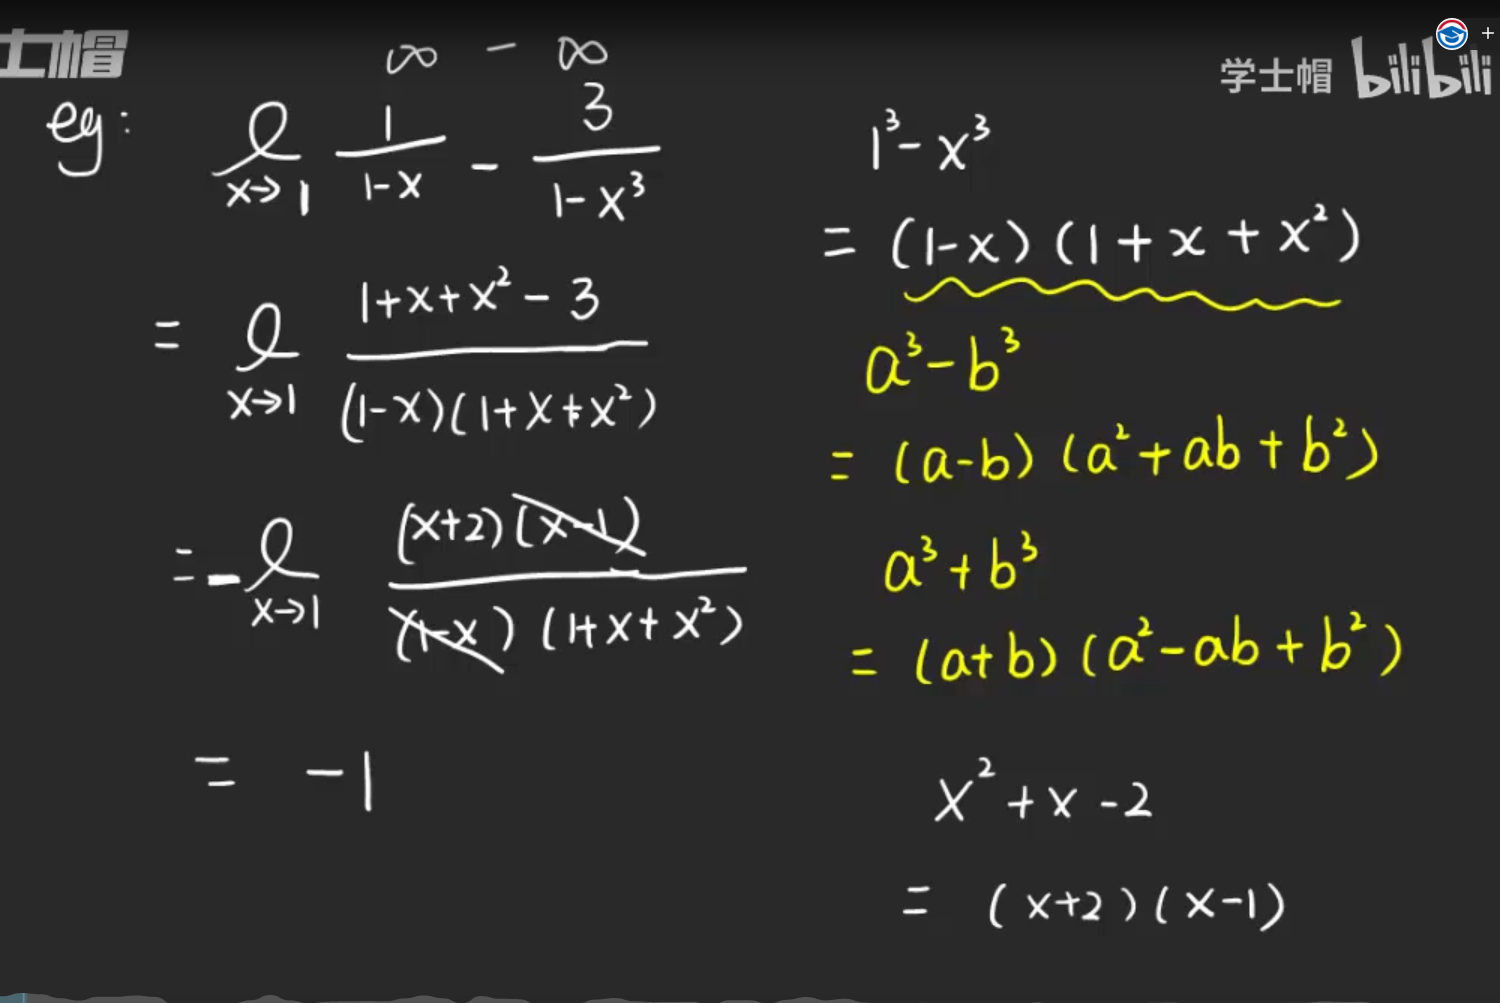 士帽
学士帽 bilibili
∞ - ∞
eg: l x→1 1/(1-x) - 3/(1-x³)
= l x→1 (1+x+x²-3)/((1-x)(1+x+x²))
= - l x→1 (x+2)(x-1)/((1-x)(1+x+x²))
= -1
1³-x³
= (1-x)(1+x+x²)
a³-b³
= (a-b)(a²+ab+b²)
a³+b³
= (a+b)(a²-ab+b²)
x²+x-2
= (x+2)(x-1)